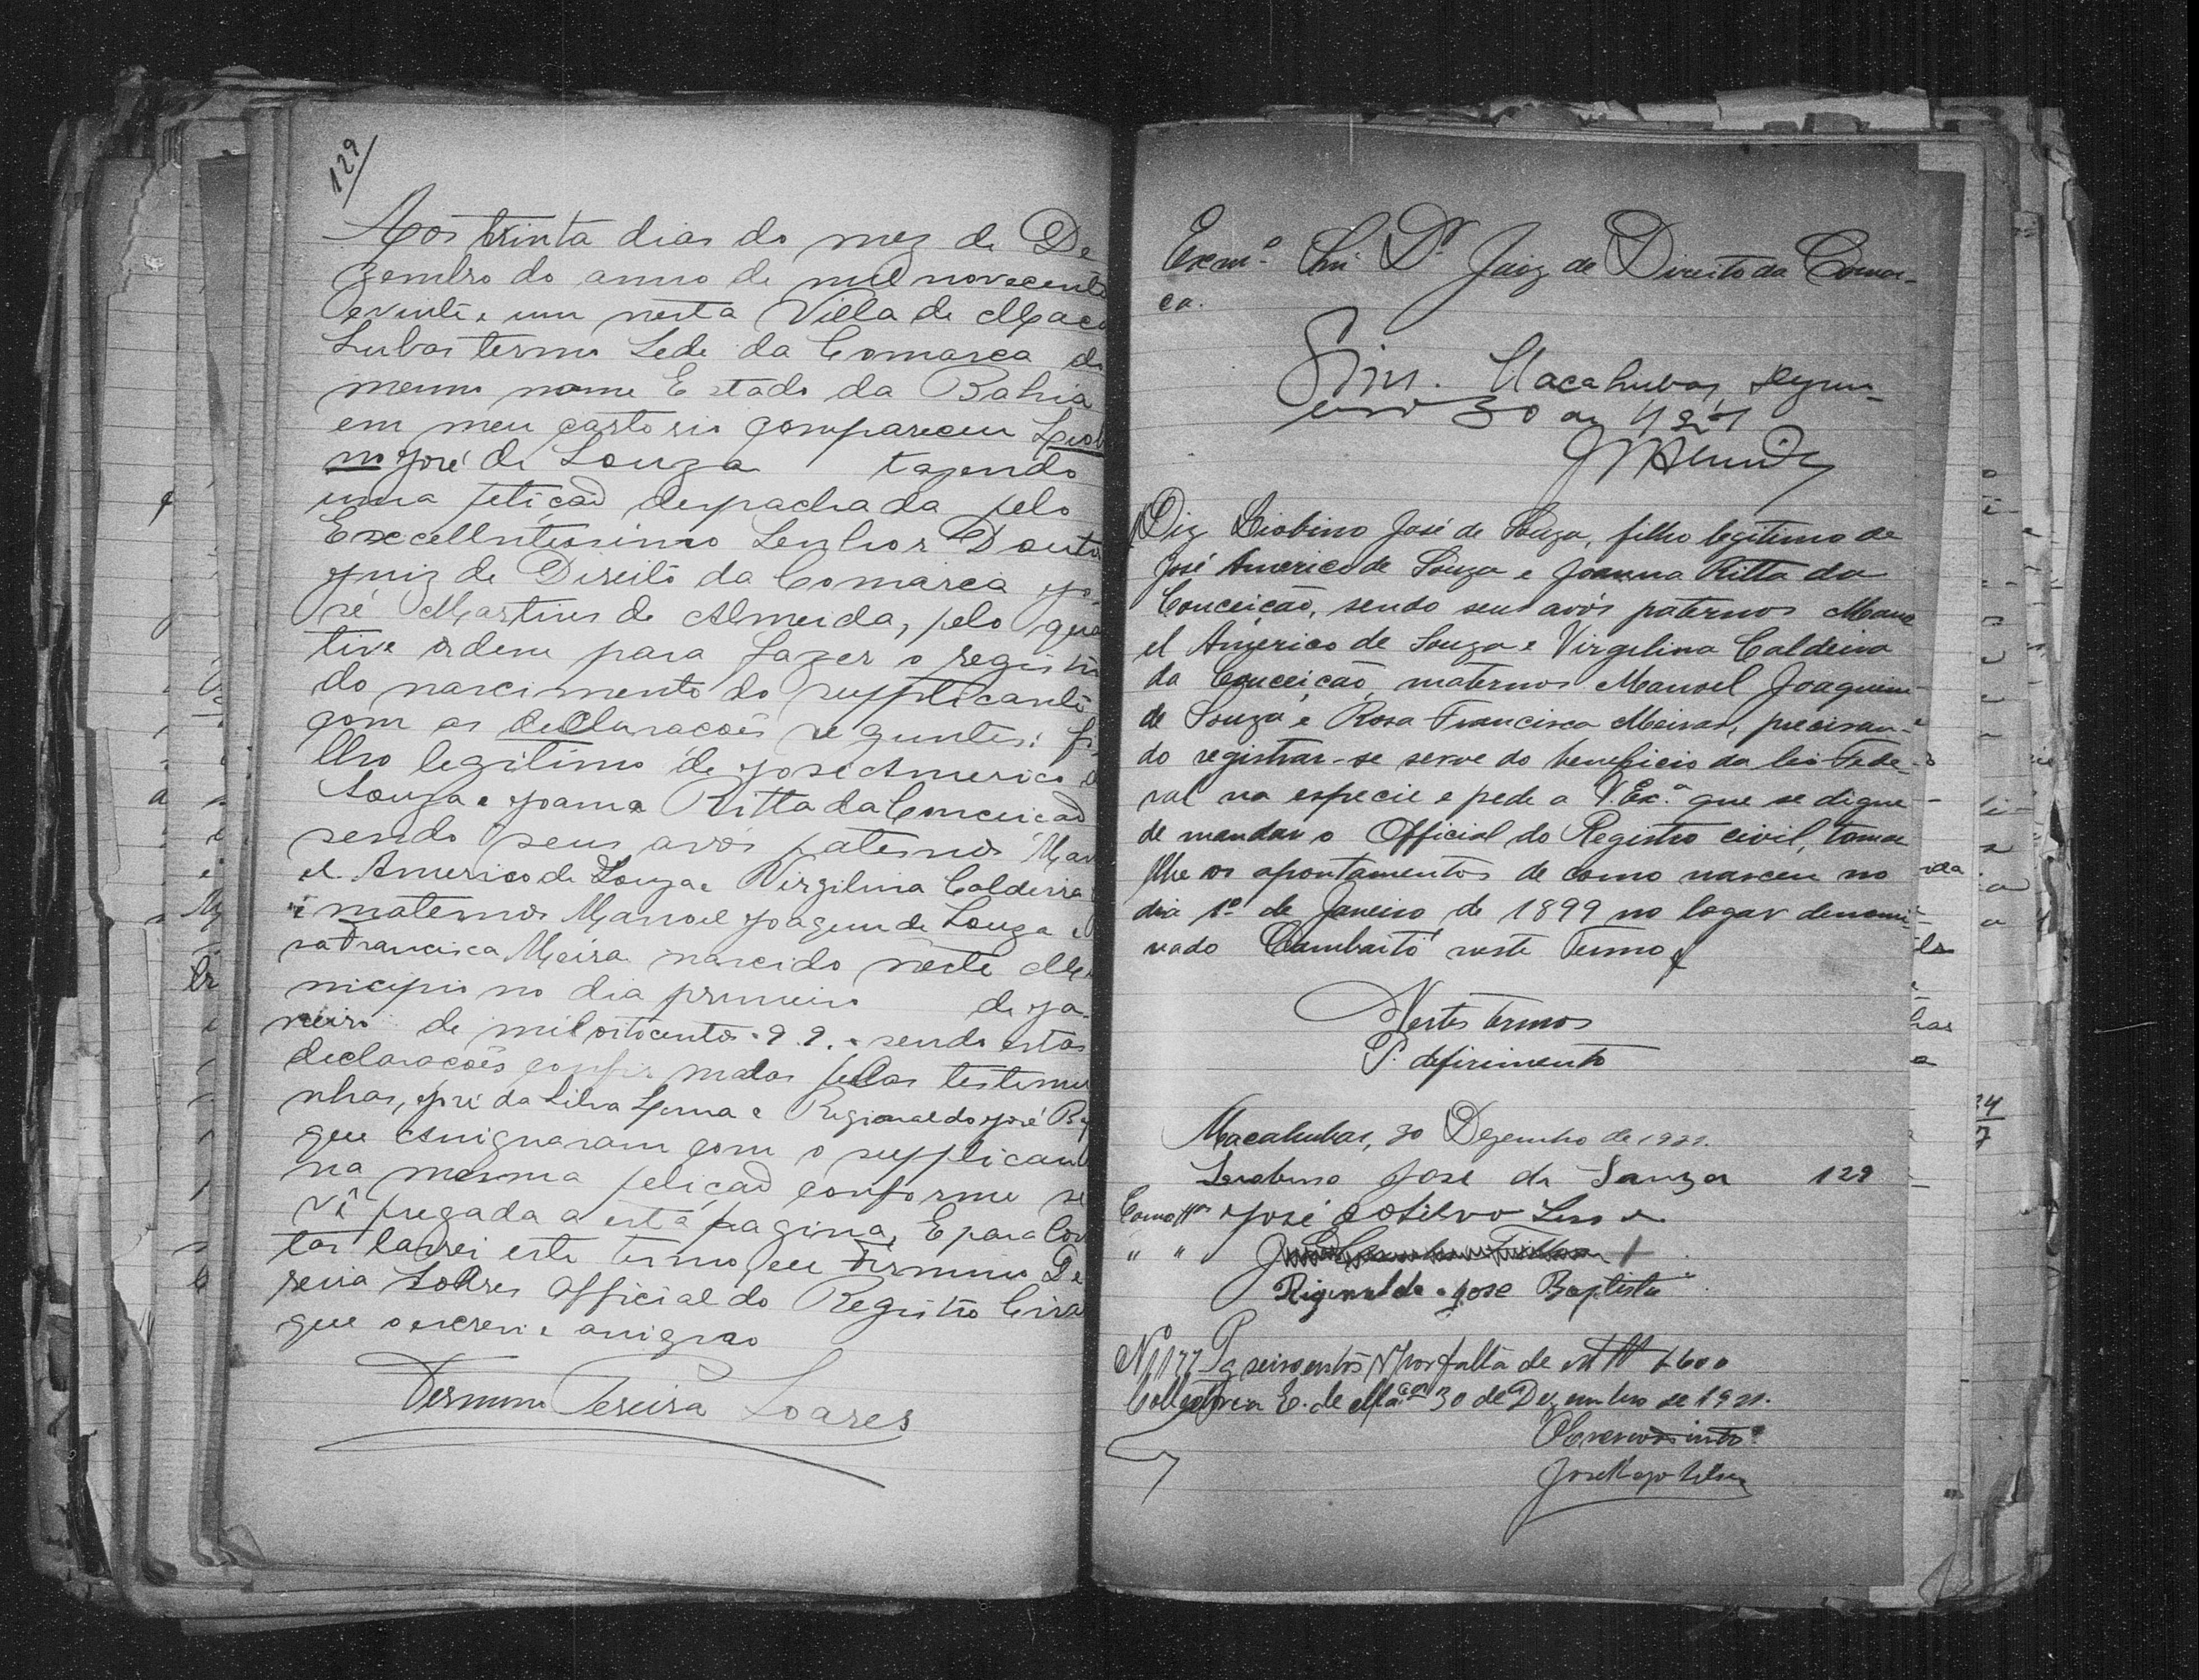 129
Aos trinta dias do mez de De
zembro do anno de mil novecento
e vinte e um nesta Villa de Maca
hubas termo Sede da Comarca do
mesmo nome Estado da Bahia
em meu cartorio compareceu Liob
no José de Souza trazendo
uma petição despachada pelo
Excellentissimo Senhor Douto
Juiz de Direito da Comarca Jo-
sé Martins de Almeida, pelo qua
tive ordem para fazer o registro
do nascimento do supplicante
com as declarações seguntes: fi
lho legitimo de José Americo d
Souza e Joana Ritta da Conceicaõ
sendo seus avós paternos Man
el Americo de Souza e Virgilina Caldeira
e maternos Manoel Joaquim de Souza e
sa Francisca Meira nascido néste Mu
nicipio no dia primeiro de Ja-
neiro de mil oitocentos 99. sendo estas
declaracoẽs confirmadas pellas testemu
nhas, José da Silva Lema e Reginaldo José Bap
que assignaram com o supplicant
na mesma petiçaõ conforme se
vê pregada a esta pagina, E para Cons
tar lavrei este termo, eu Firmino Pe
reira Soares Official do Registro Civil
que o escrevi e assigno
Firmino Pereira Soares
Exmº Snr. Dr. Juiz de Direito da Comar-
ca.
Sim. Macahubas, Dezem-
bro 30 de 1921
JMAlmeida
Diz Liobino José de Souza, filho legitimo de
José Americo de Souza e Joanna Ritta da
Conceição, sendo seus avós paternos Mano
el Americo de Souza e Virgilina Caldeira
da Conceição, maternos Manoel Joaquim
de Souza e Rosa Francisca Meiras, precisan-
do registrar-se serve do beneficio da lei Fede-
ral na especie e pede a V. Exª. que se digne
de mandar o Official do Registro civil, tomar
lhe os apontamentos de como nasceu no
dia 1º de Janeiro de 1899 no logar denomi-
nado Cambaitó neste Termo
Nestes termos
P. deferimento
Macahubas, 30 Dezembro de 1921.
Leobino José de Souza 129
Como ttas José da Silva
" "
Riginaldo José Baptista
Nº 1177 Pg seiscentos por falta de 600
Collectoria E. de Macas 30 de Dezembro de 1921.